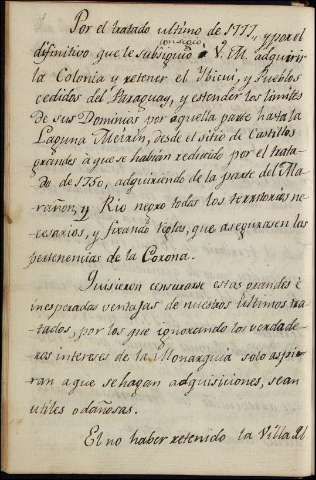 Por el tratado ultimo de 1777, y por el
difinitivo que le subsiguió consiguió V. M. adquirir
la Colonia y retener el Ybicui, y Pueblos
cedidos del Paraguay, y estender los limites
de sus Dominios por aquella parte hasta la
Laguna Meirin, desde el sitio de Castillos
grandes à que se habian reducido por el trata-
do de 1750, adquiriendo de la parte del Ma-
rañon, y Rio negro todos los territorios ne-
cesarios, y fixando reglas, que asegurasen las
pertenencias de la Corona.
Quisieron censurarse estas grandes è
inesperadas ventajas de nuestros ultimos tra-
tados, por los que ignorando los verdade-
ros intereses de la Monarquia solo aspi-
ran a que se hagan adquisiciones, sean
utiles o dañosas.
El no haber retenido la Villa del